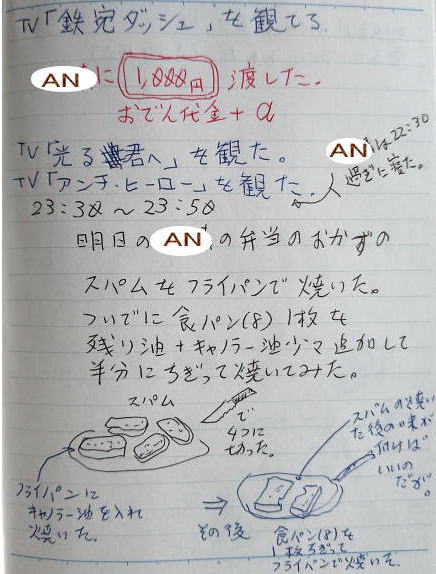 TV「鉄宛ダッシュ」を観てる。
AN に 1,000円 渡した。
おでん代金+α
TV「光る君へ」を観た。
AN は22:30
過ぎに寝た。
TV「アンチ・ヒーロー」を観た。
23:30～23:50
明日の AN の弁当のおかずの
スパムをフライパンで焼いた。
ついでに食パン(8)1枚を
残り油+キャノラー油少々追加して
半分にちぎって焼いてみた。
スパム
で
4つに
切った。
フライパンに
キャノラー油を入れ
焼いた。
⇒
その後
スパムの焼い
た後の味が
付けば
いいの
だが。
食パン(8)を
1枚ちぎって
フライパンで焼いた。